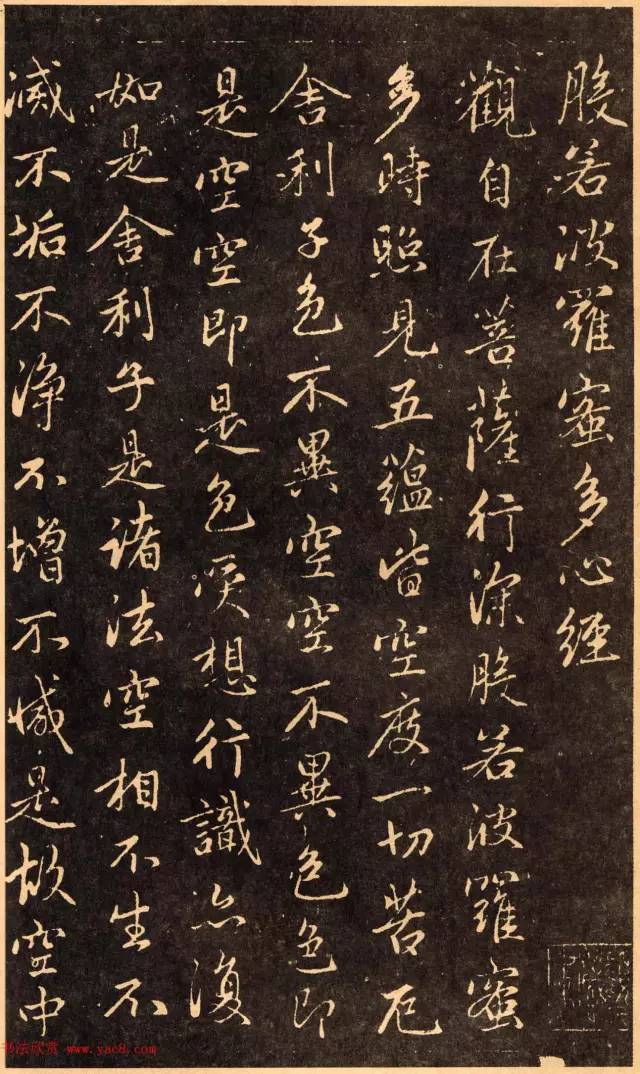 般若波羅蜜多心經
觀自在菩薩行深般若波羅蜜
多時照見五蘊皆空度一切苦厄
舍利子色不異空空不異色色即
是空空即是色受想行識亦復
如是舍利子是諸法空相不生不
滅不垢不淨不增不減是故空中
书法欣赏 www.yac8.com